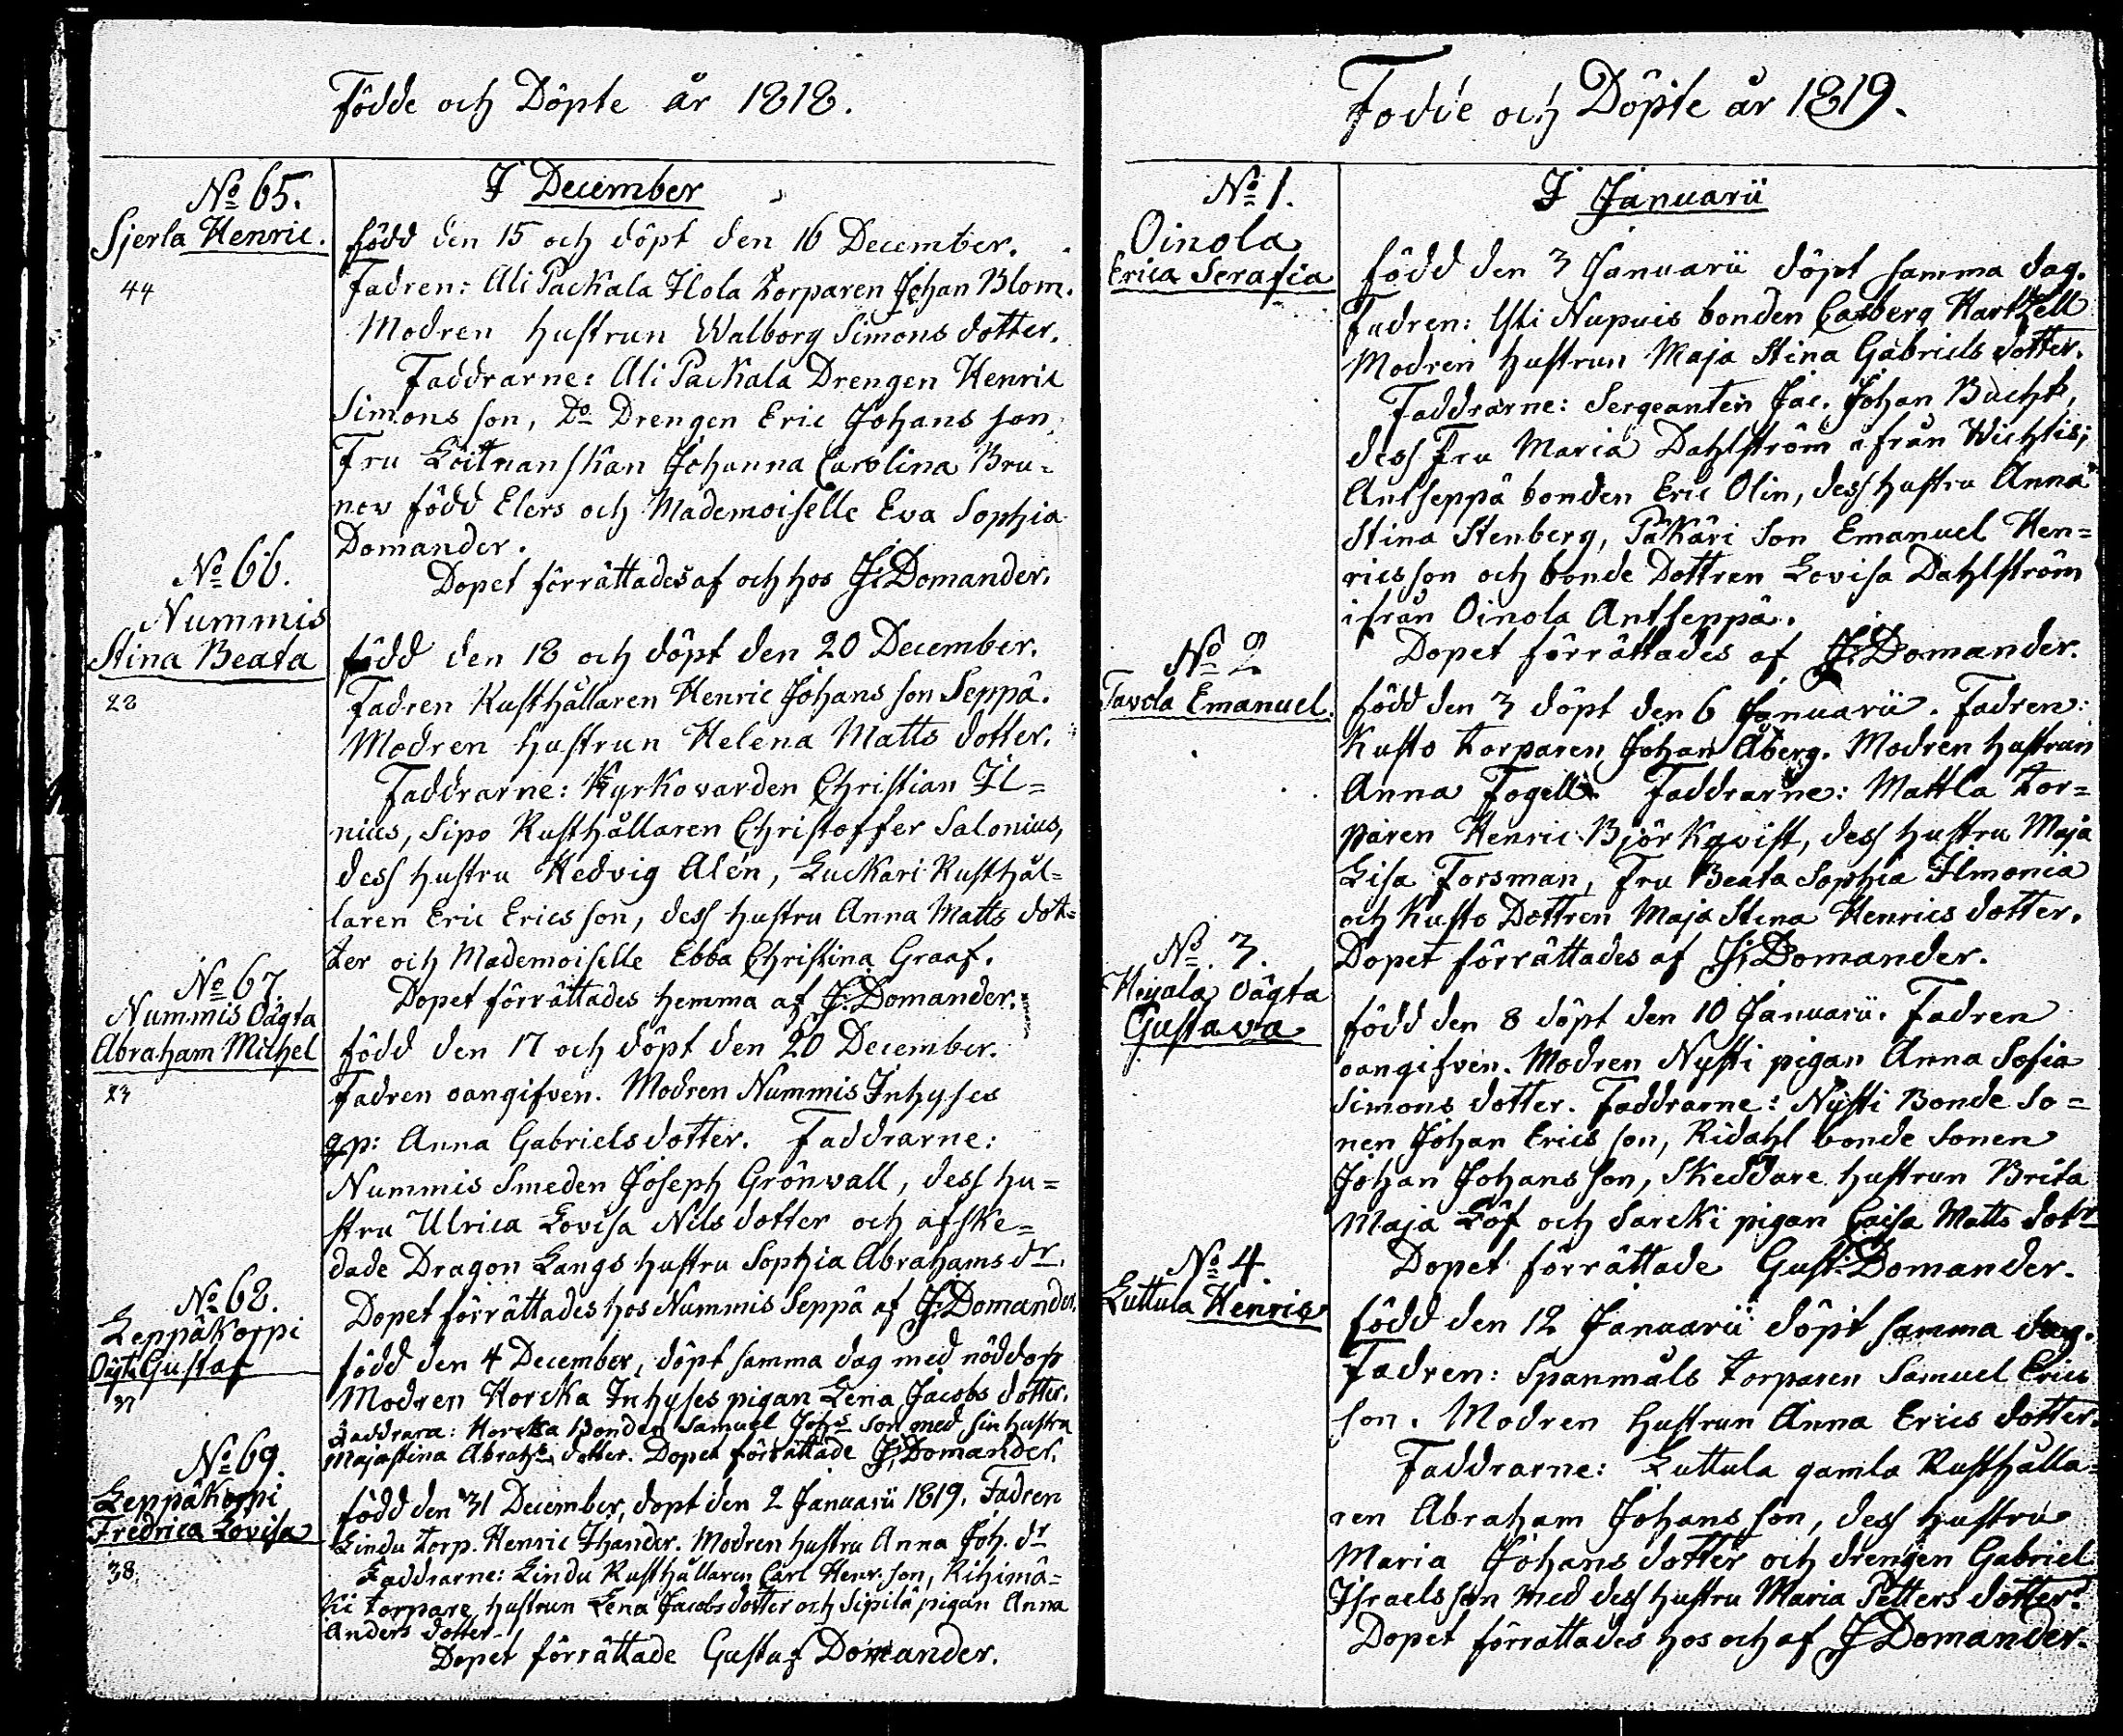 Födde och Döpte år 1818.
No 65.
Sjerla Henric.
44
I December
född den 15 och döpt den 16 December.
Fadren: Ali Packala Ilola Torparen Johan Blom.
Modren hustrun Walborg Simons dotter.
Faddrarne: Ali Packala Drengen Henric
Simons son, Do Drengen Eric Johans son,
Fru Löitnanskan Johanna Carolina Bru=
nov född Elers och Mademoiselle Eva Sophia
Domander.
Dopet förrättades af och hos J. Domander.
No 66.
Nummis
Stina Beata
22
född den 18 och döpt den 20 December.
Fadren Rusthållaren Henric Johans son Seppä.
Modren hustrun Helena Matts dotter.
Faddrarne: Kyrkovarden Christian Il=
nius, Sipo Rusthållaren Christoffer Salonius,
dess hustru Hedvig Alén, Luckari Rusthål=
laren Eric Erics son, dess hustru Anna Matts dot=
ter och Mademoiselle Ebba Christina Graaf.
Dopet förrättades hemma af J. Domander.
No 67.
Nummis Oägta
Abraham Michel
23
född den 17 och döpt den 20 December.
Fadren oangifven. Modren Nummis Inhyses
qp: Anna Gabriels dotter. Faddrarne:
Nummis Smeden Joseph Grönvall, dess hu=
stru Ulrica Lovisa Nils dotter och afske=
dade Dragon Langs hustru Sophia Abrahams dr.
Dopet förrättades hos Nummis Seppä af J. Domander.
No 68.
Leppäkorpi
Oägta Gustaf
37
född den 4 December, döpt samma dag med nöddop
Modren Horcka Inhyses pigan Lena Jacobs dotter.
Faddrara: Horcka Bonden Samuel Johs son med sin hustru
Majastina Abrahs dotter. Dopet förrättade J. Domander.
No 69.
Leppäkorpi
Fredrica Lovisa
38.
född den 31 December, dopt den 2 Januarii 1819. Fadren
Lindu torp. Henric Thander. Modren hustru Anna Joh. dr
Faddrarne: Lindu Rusthållaren Carl Henr. son, Rihimä=
ki torpare hustrun Lena Jacobs dotter och Sipilä pigan Anna
Anders dotter
Dopet förrättade Gustaf Domander.
Födde och Döpte år 1819.
No 1.
Oinola
Erica Serafia
I Januarii
född den 3 Januarii döpt samma dag.
Fadren: Yli Nupuis bonden Carberg Hartzell
Modren hustrun Maja Stina Gabriels dotter.
Faddrarne: Sergeanten Jac. Johan Bucht,
dess Fru Maria Dahlström ifrån Wichtis;
Antseppä bonden Eric Olin, dess hustru Anna
Stina Stenberg, Päkäri Son Emanuel Hen=
rics son och bonde Dottren Lovisa Dahlström
ifrån Oinola Antseppä.
Dopet förrättades af J. Domander.
No 2
Tavola Emanuel.
född den 3 döpt den 6 Januarii. Fadren:
Kusto torparen Johan Åberg. Modren hustrun
Anna Fogell. Faddrarne: Mattla tor=
paren Henric Björkqvist, dess hustru Maja
Lisa Forsman, Fru Beata Sophia Ilmonia
och Kusto Dottren Maja Stina Henrics dotter.
Dopet förrättades af J. Domander.
No. 3.
Heijala Oägta
Gustava
född den 8 döpt den 10 Januarii. Fadren
oangifven. Modren Nysti pigan Anna Sofia
Simons dotter. Faddrarne: Nysti Bonde So=
nen Johan Erics son, Ridahl bonde Sonen
Johan Johans son, Skeddare hustrun Brita
Maja Löf och Sarcki pigan Caisa Matts dotr
Dopet förrättade Gust: Domander.
No 4.
Luttula Henric
född den 12 Januarii döpt samma dag.
Fadren: Spanmåls torparen Samuel Erics
son. Modren hustrun Anna Erics dotter.
Faddrarne: Luttula gamla Rusthålla=
ren Abraham Johans son, dess hustru
Maria Johans dotter och drengen Gabriel
Israels son med dess hustru Maria Petters dotter.
Dopet förrattades hos och af J Domander.